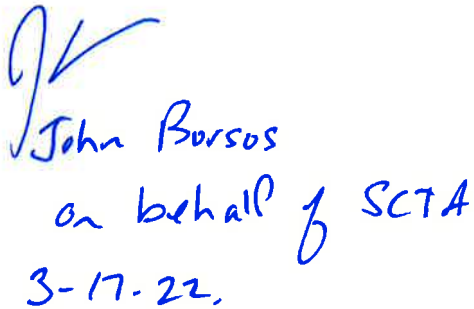 John Borsos
on behalf of SCTA
3-17-22.